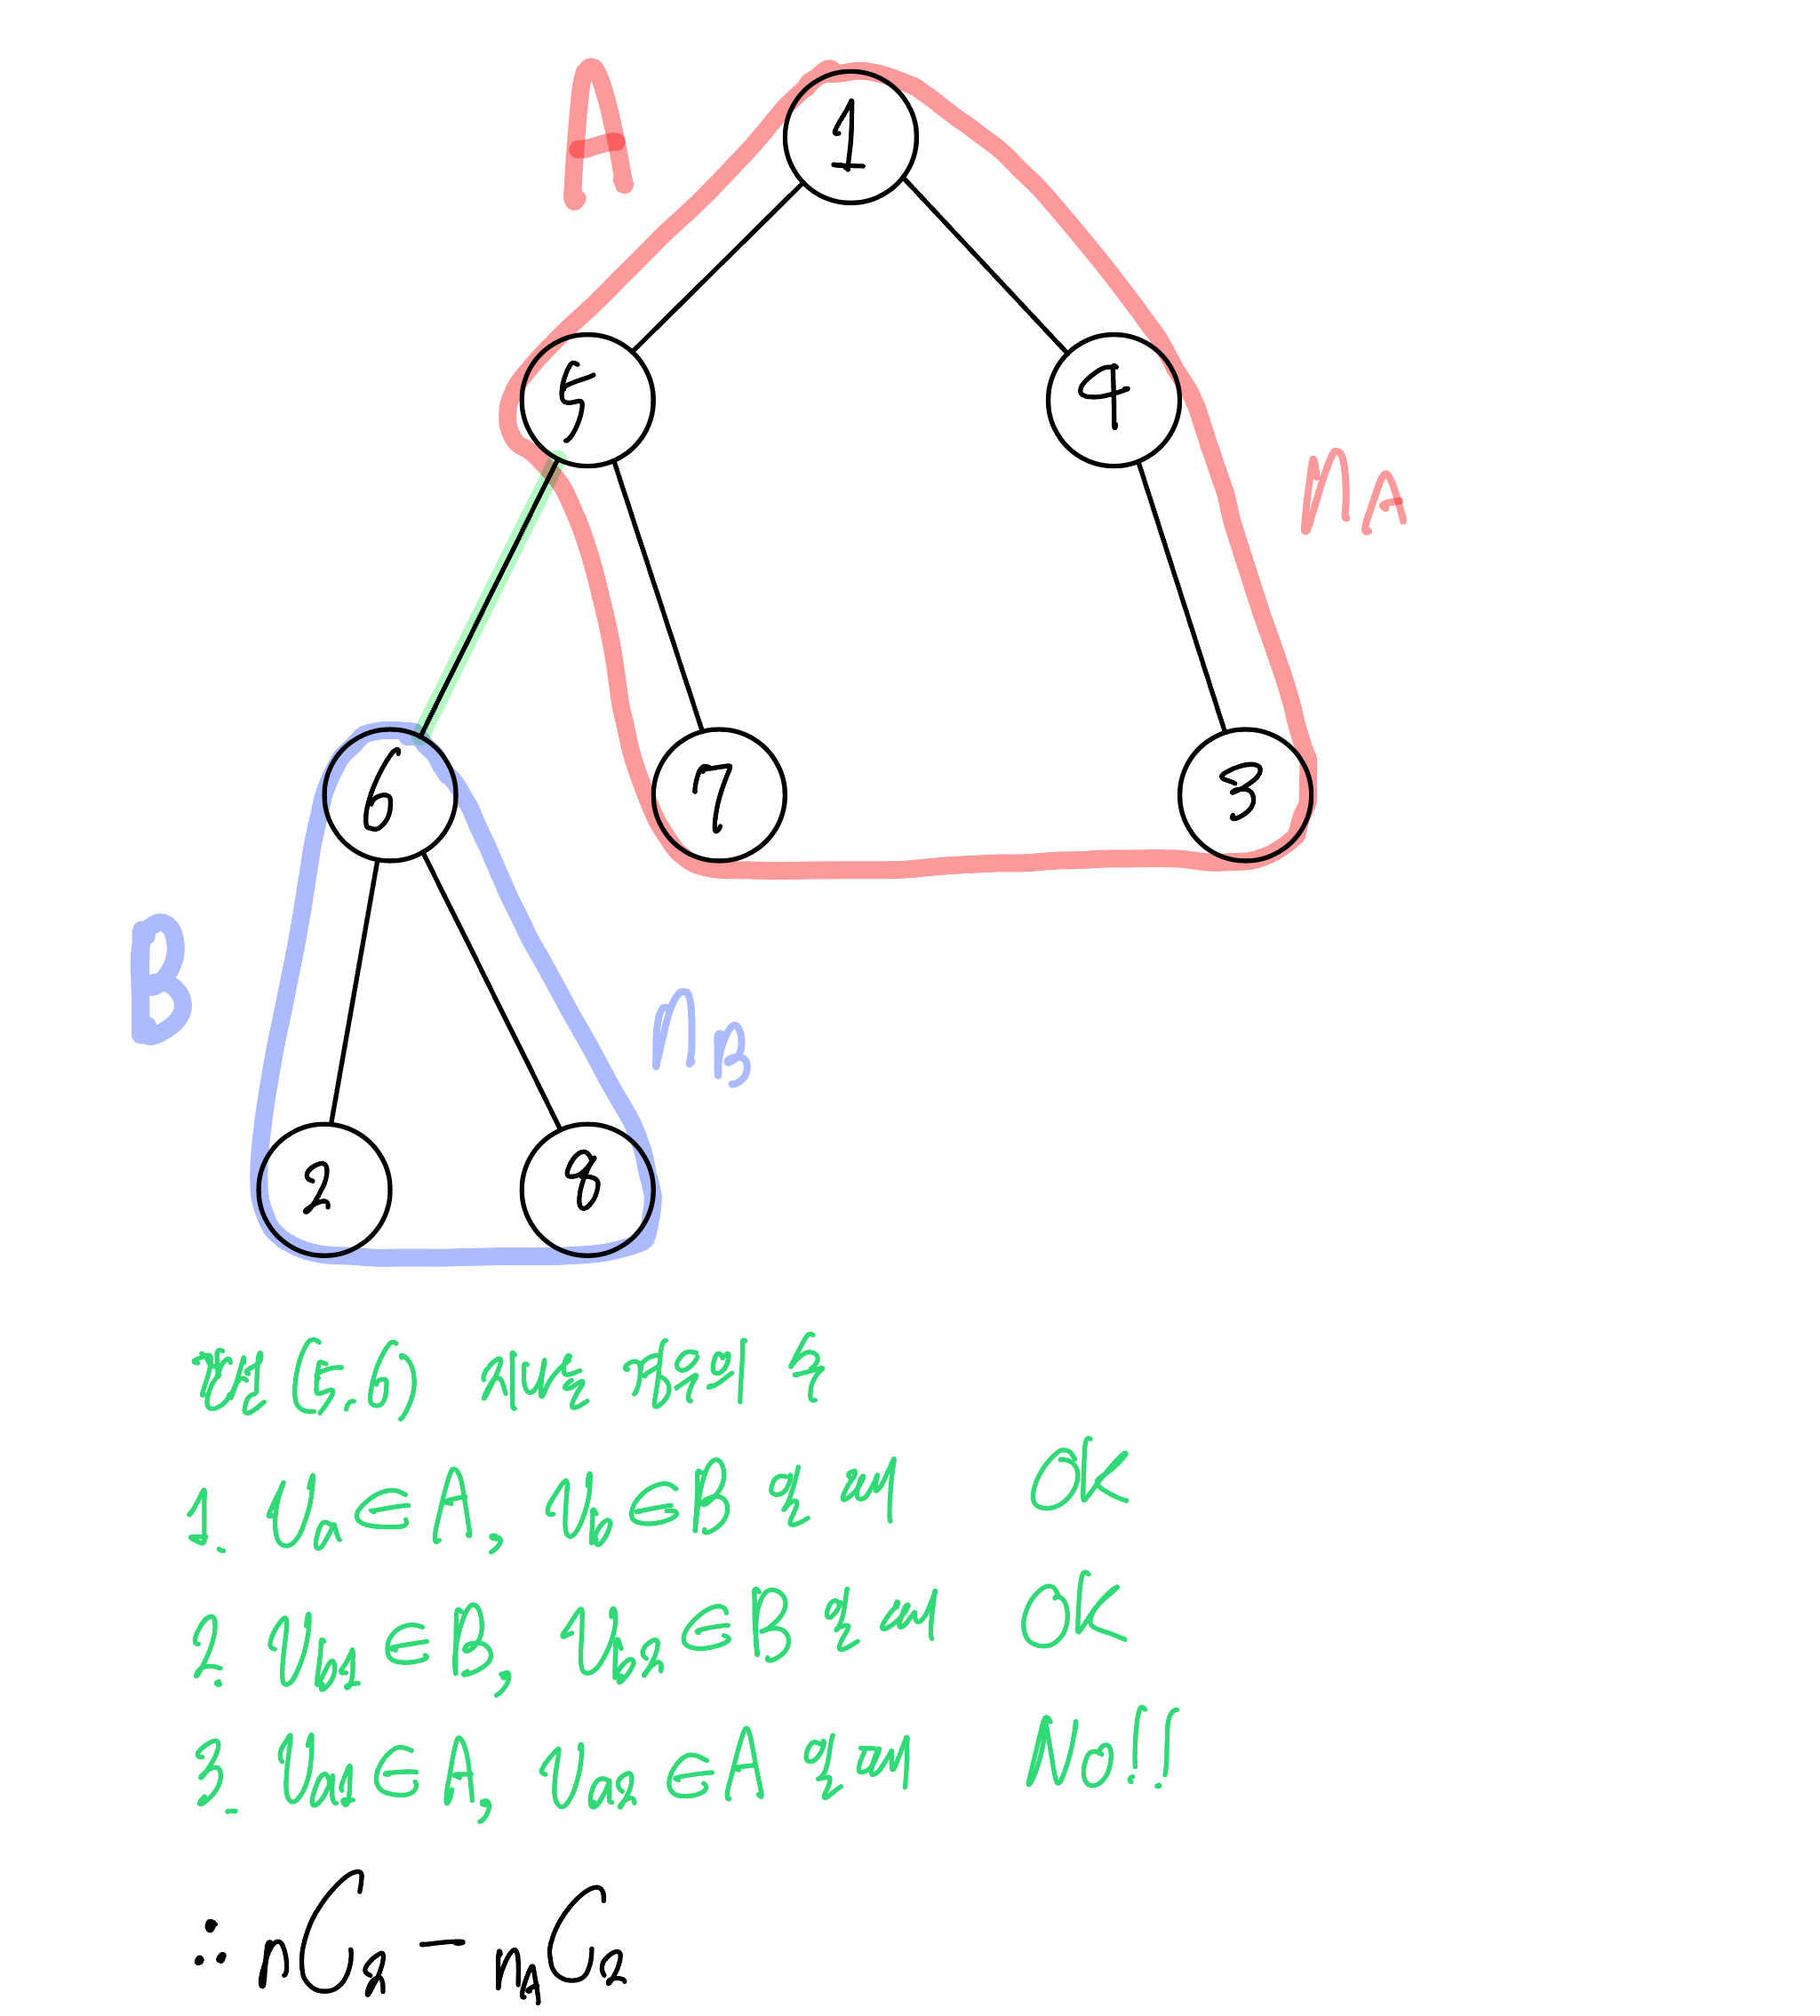 A
1
5
4
n_A
6
7
3
B
n_B
2
8
간선 (5, 6) 지나는 경로의 수
1. V_a ∈ A, V_b ∈ B 일 때 OK
2. V_b1 ∈ B, V_b2 ∈ B 일 때 OK
3. V_a1 ∈ A, V_a2 ∈ A 일 때 No!!
∴ nC2 - n_AC2